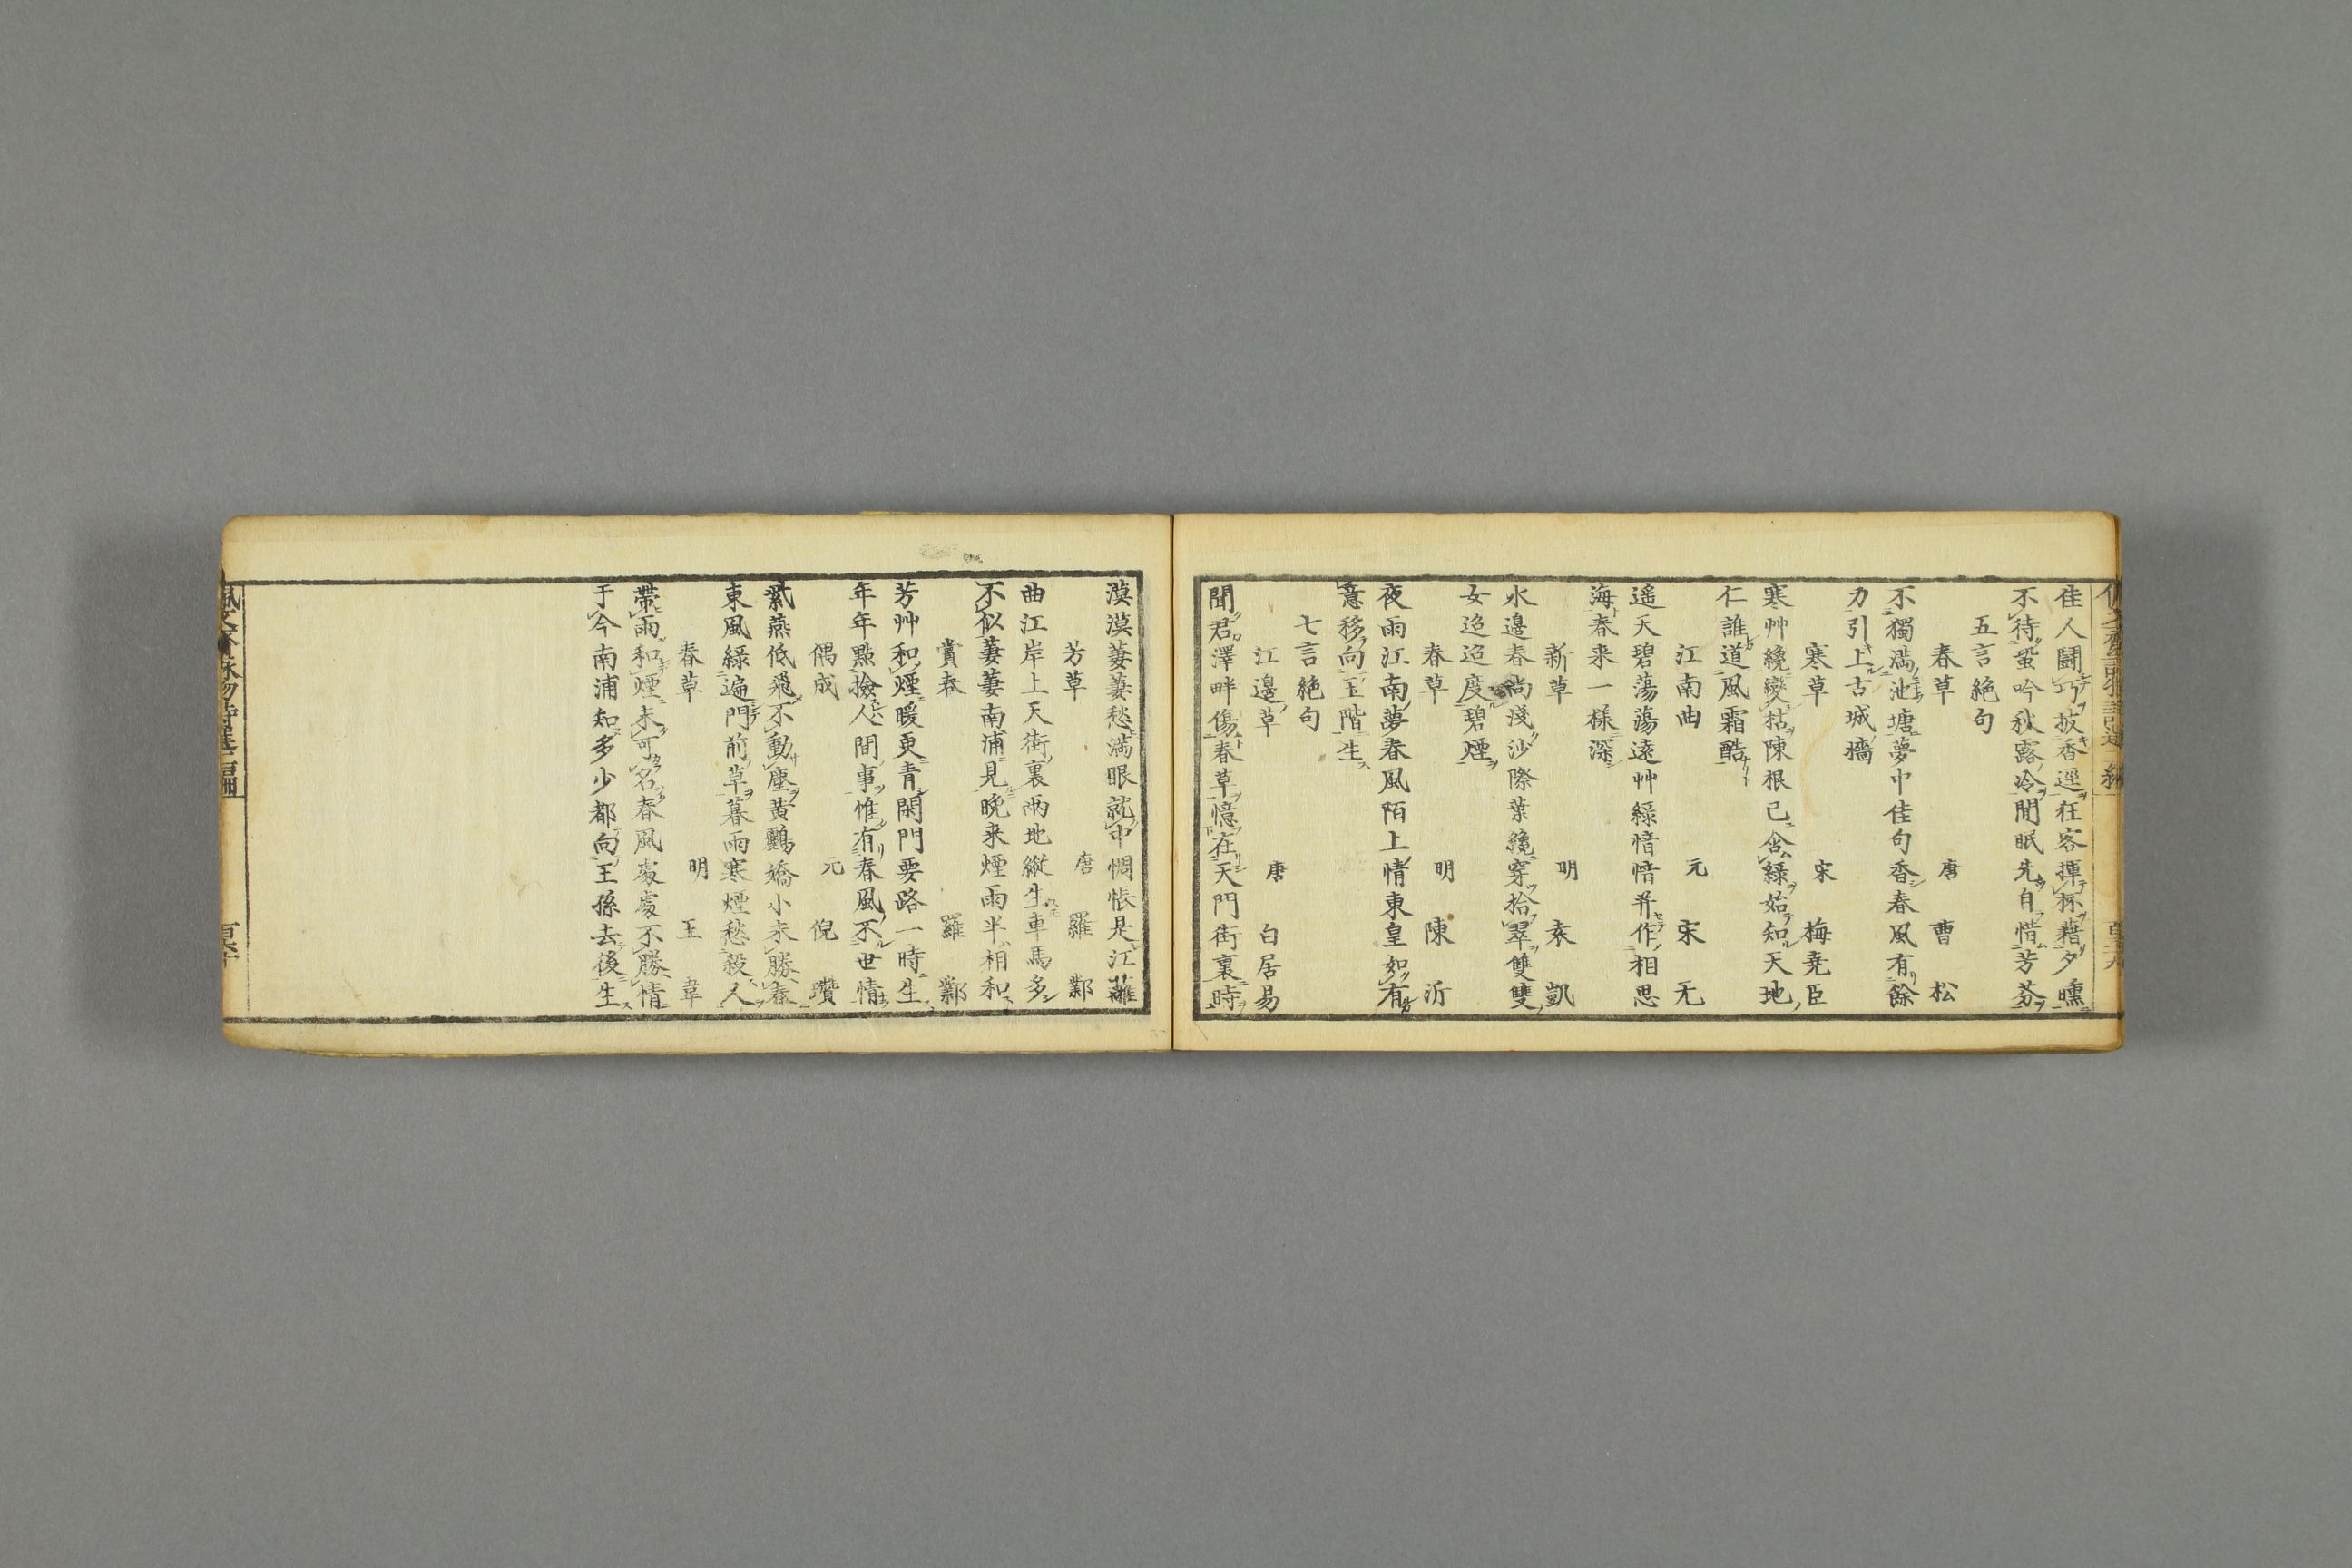 佳人鬪巧披香逕狂客揮杯藉夕曛
不待蛩吟秋露冷閒眠先自惜芳芬
五言絕句
春草 唐 曹松
不獨滿池塘夢中佳句香春風有餘
力引上古城墻
寒草 宋 梅堯臣
寒艸纔變枯陳根已含綠始知天地
仁誰道風霜酷
江南曲 元 宋无
遥天碧蕩蕩遠艸綠愔愔并作相思
海春来一様深
新草 明 袁凱
水邊春尚淺沙際葉纔穿拾翠雙雙
女迢迢度碧煙
春草 明 陳沂
夜雨江南夢春風陌上情東皇如有
意移向玉階生
七言絕句
江邊草 唐 白居易
聞君澤畔傷春草憶在天門街裏時
漠漠萋萋愁滿眼就中惆悵是江蘺
芳草 唐 羅鄴
曲江岸上天街裏兩地縱生車馬多
不似萋萋南浦見晚来煙雨半相和
賞春 羅鄴
芳艸和煙暖更青閑門要路一時生
年年點撿人間事惟有春風不世情
偶成 元 倪瓚
紫燕低飛不動塵黃鸝嬌小未勝春
東風綠遍門前草暮雨寒煙愁殺人
春草 明 王韋
帶雨和煙未可名春風處處不勝情
于今南浦知多少都向王孫去後生